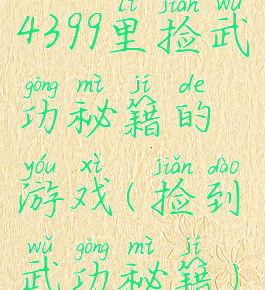 lǐ jiǎn wǔ
4399里捡武
gōng mì jí de
功秘籍的
yóu xì jiǎn dào
游戏(捡到
wǔ gōng mì jí
武功秘籍)